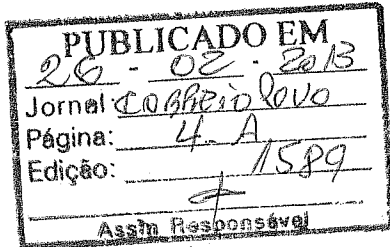 PUBLICADO EM
26 - 02 - 2013
Jornal: CORREIO POVO
Página: 4 A
Edição: 1589
Assin Responsável